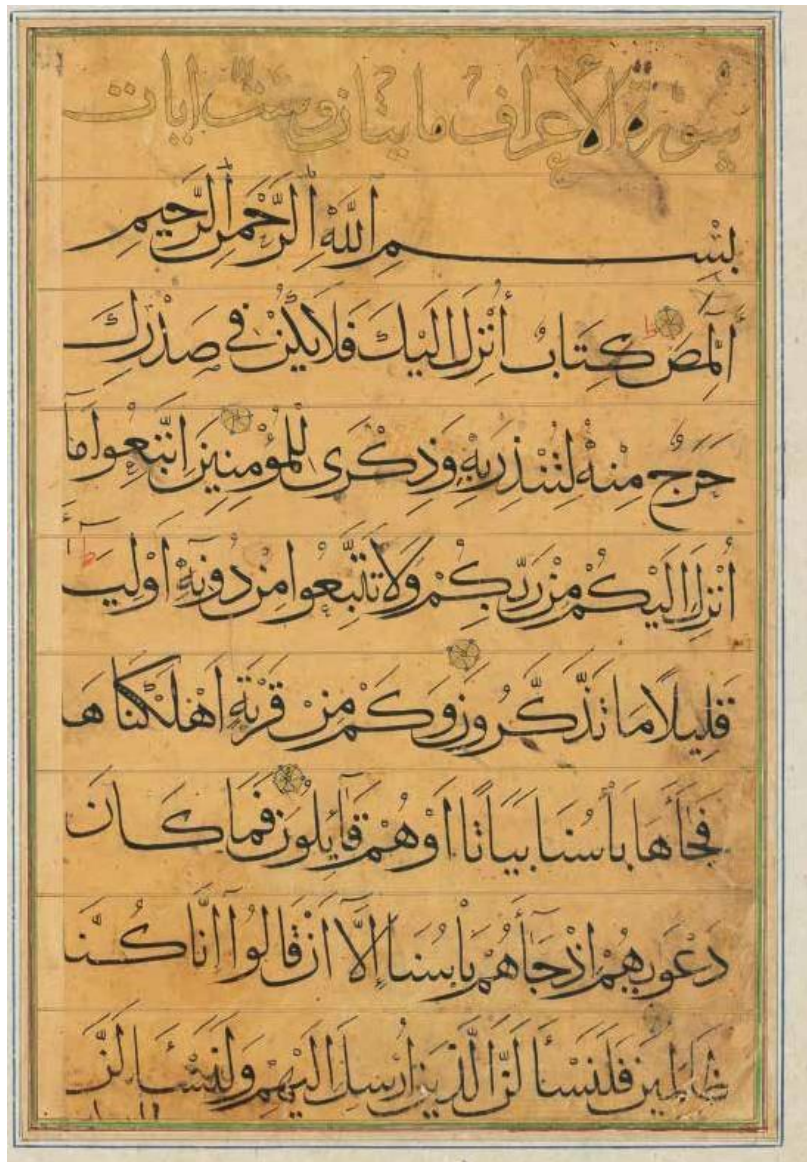 سورة الأعراف مايتان وست ايات
بِسْمِ اللَّهِ الرَّحْمَنِ الرَّحِيمِ
الٓمٓصٓ كِتَابٌ أُنْزِلَ اِلَيْكَ فَلَا يَكُنْ فِي صَدْرِكَ
حَرَجٌ مِنْهُ لِتُنْذِرَ بِهِ وَذِكْرَى لِلْمُؤْمِنِينَ اِتَّبِعُوا مَآ
اُنْزِلَ اِلَيْكُمْ مِنْ رَبِّكُمْ وَلَا تَتَّبِعُوا مِنْ دُونِهِٓ اَوْلِيَآءَ
قَلِيلًا مَا تَذَّكَّرُونَ وَكَمْ مِنْ قَرْيَةٍ اَهْلَكْنَاهَا
فَجَآءَهَا بَأْسُنَا بَيَاتًا اَوْ هُمْ قَآئِلُونَ فَمَا كَانَ
دَعْوَيهُمْ اِذْ جَآءَهُمْ بَأْسُنَا اِلَّآ اَنْ قَالُوٓا اِنَّا كُنَّا
ظَالِمِينَ فَلَنَسْأَلَنَّ الَّذِينَ اُرْسِلَ اِلَيْهِمْ وَلَنَسْأَلَنَّ